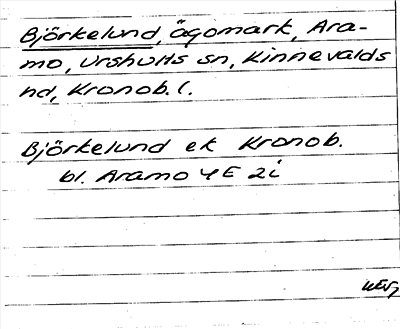 Björkelund, ägomark, Ara-
mo, Urshults sn, Kinnevalds
hd, Kronob. l.
Björkelund ek Kronob.
bl. Aramo 4E 2i